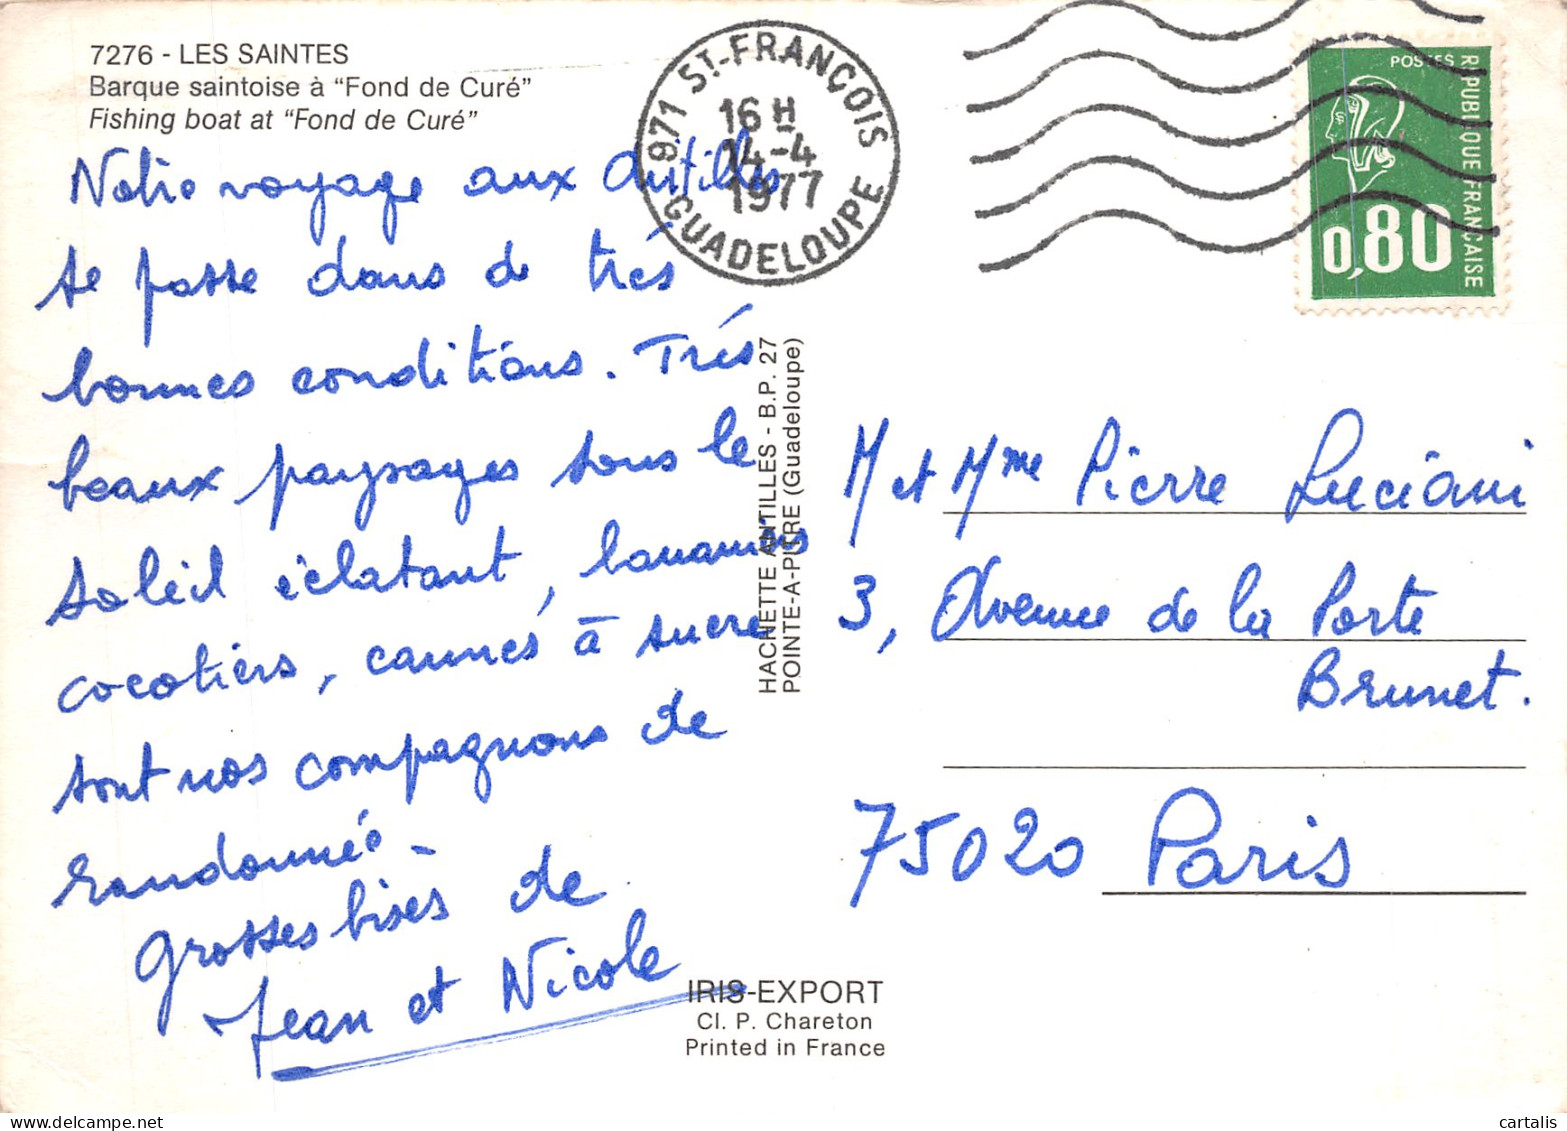 7276 - LES SAINTES
Barque saintoise à “Fond de Curé”
Fishing boat at “Fond de Curé”
971 ST-FRANÇOIS
16 H
14-4
1977
GUADELOUPE
POSTES
REPUBLIQUE FRANCAISE
0,80
Notre voyage aux Antilles
se passe dans de très
bonnes conditions. Très
beaux paysages sous le
soleil éclatant, bananiers
cocotiers, cannes à sucre
sont nos compagnons de
randonnée -
grosses bises de
Jean et Nicole
HACHETTE ANTILLES - B.P. 27
POINTE-A-PITRE (Guadeloupe)
M et Mme Pierre Luciani
3, Avenue de la Porte
Brunet.
75020 Paris
IRIS-EXPORT
Cl. P. Chareton
Printed in France
cartalis
delcampe.net